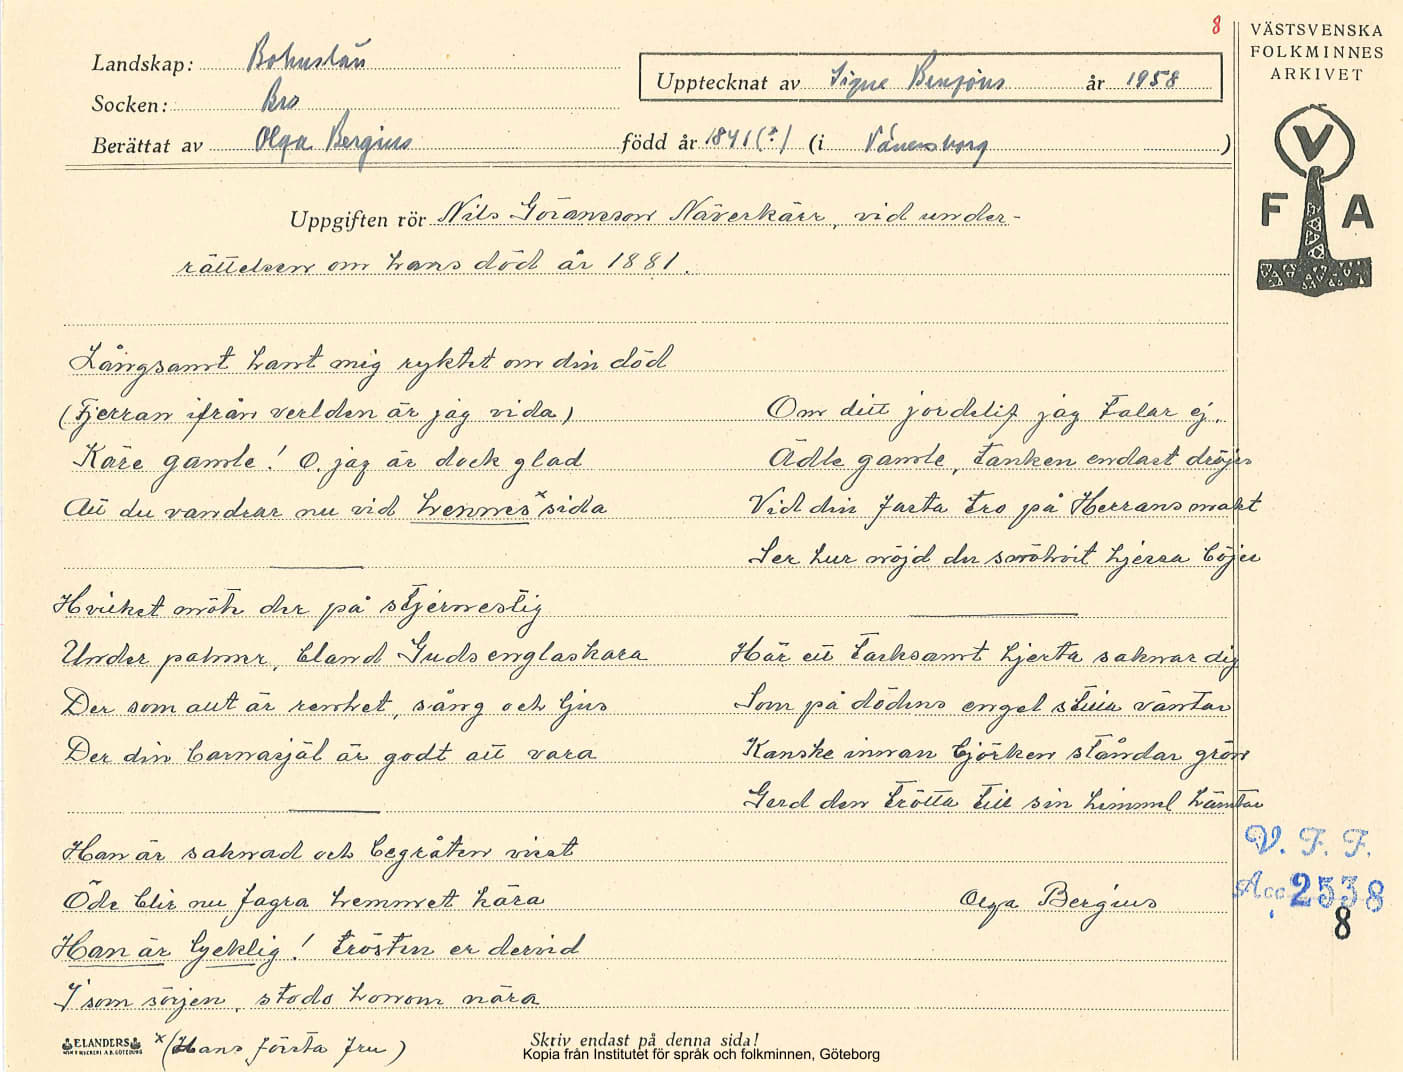 8
VÄSTSVENSKA
FOLKMINNES
ARKIVET
V
F A
Landskap: Bohuslän
Socken: Bro
Upptecknat av Signe Benjöns år 1958
Berättat av Olga Bergius född år 1841(?) (i Vänersborg )
Uppgiften rör Nils Göransson Näverkärr, vid under-
rättelsen om hans död år 1881.
Långsamt hant mig ryktet om din död
(Fjerran ifrån verlden är jag vida)
Käre gamle! O, jag är dock glad
Att du vandrar nu vid hennes x sida
Hvilket möte der på stjernestig
Under palmer, bland Guds englaskara
Der som allt är renhet, sång och ljus
Der din barnasjäl är godt att vara
Han är saknad och begråten visst
Öde blir nu fagra hemmet kära
Han är lycklig! trösten er dervid
I som sörjen, stodo honom nära
x (Hans första fru)
Om ditt jordelif jag talar ej.
Ädle gamle, tanken endast dröjer
Vid din fasta tro på Herrans makt
Ser hur nöjd du snöhvit hjessa böjer
Här ett tacksamt hjerta saknar dig
Som på dödens engel stilla väntar
Kanske innan björken ståndar grön
Gerd den trötta till sin himmel hämtar
Olga Bergius
V. F. F.
Acc 2538
8
ELANDERS
Skriv endast på denna sida!
Kopia från Institutet för språk och folkminnen, Göteborg